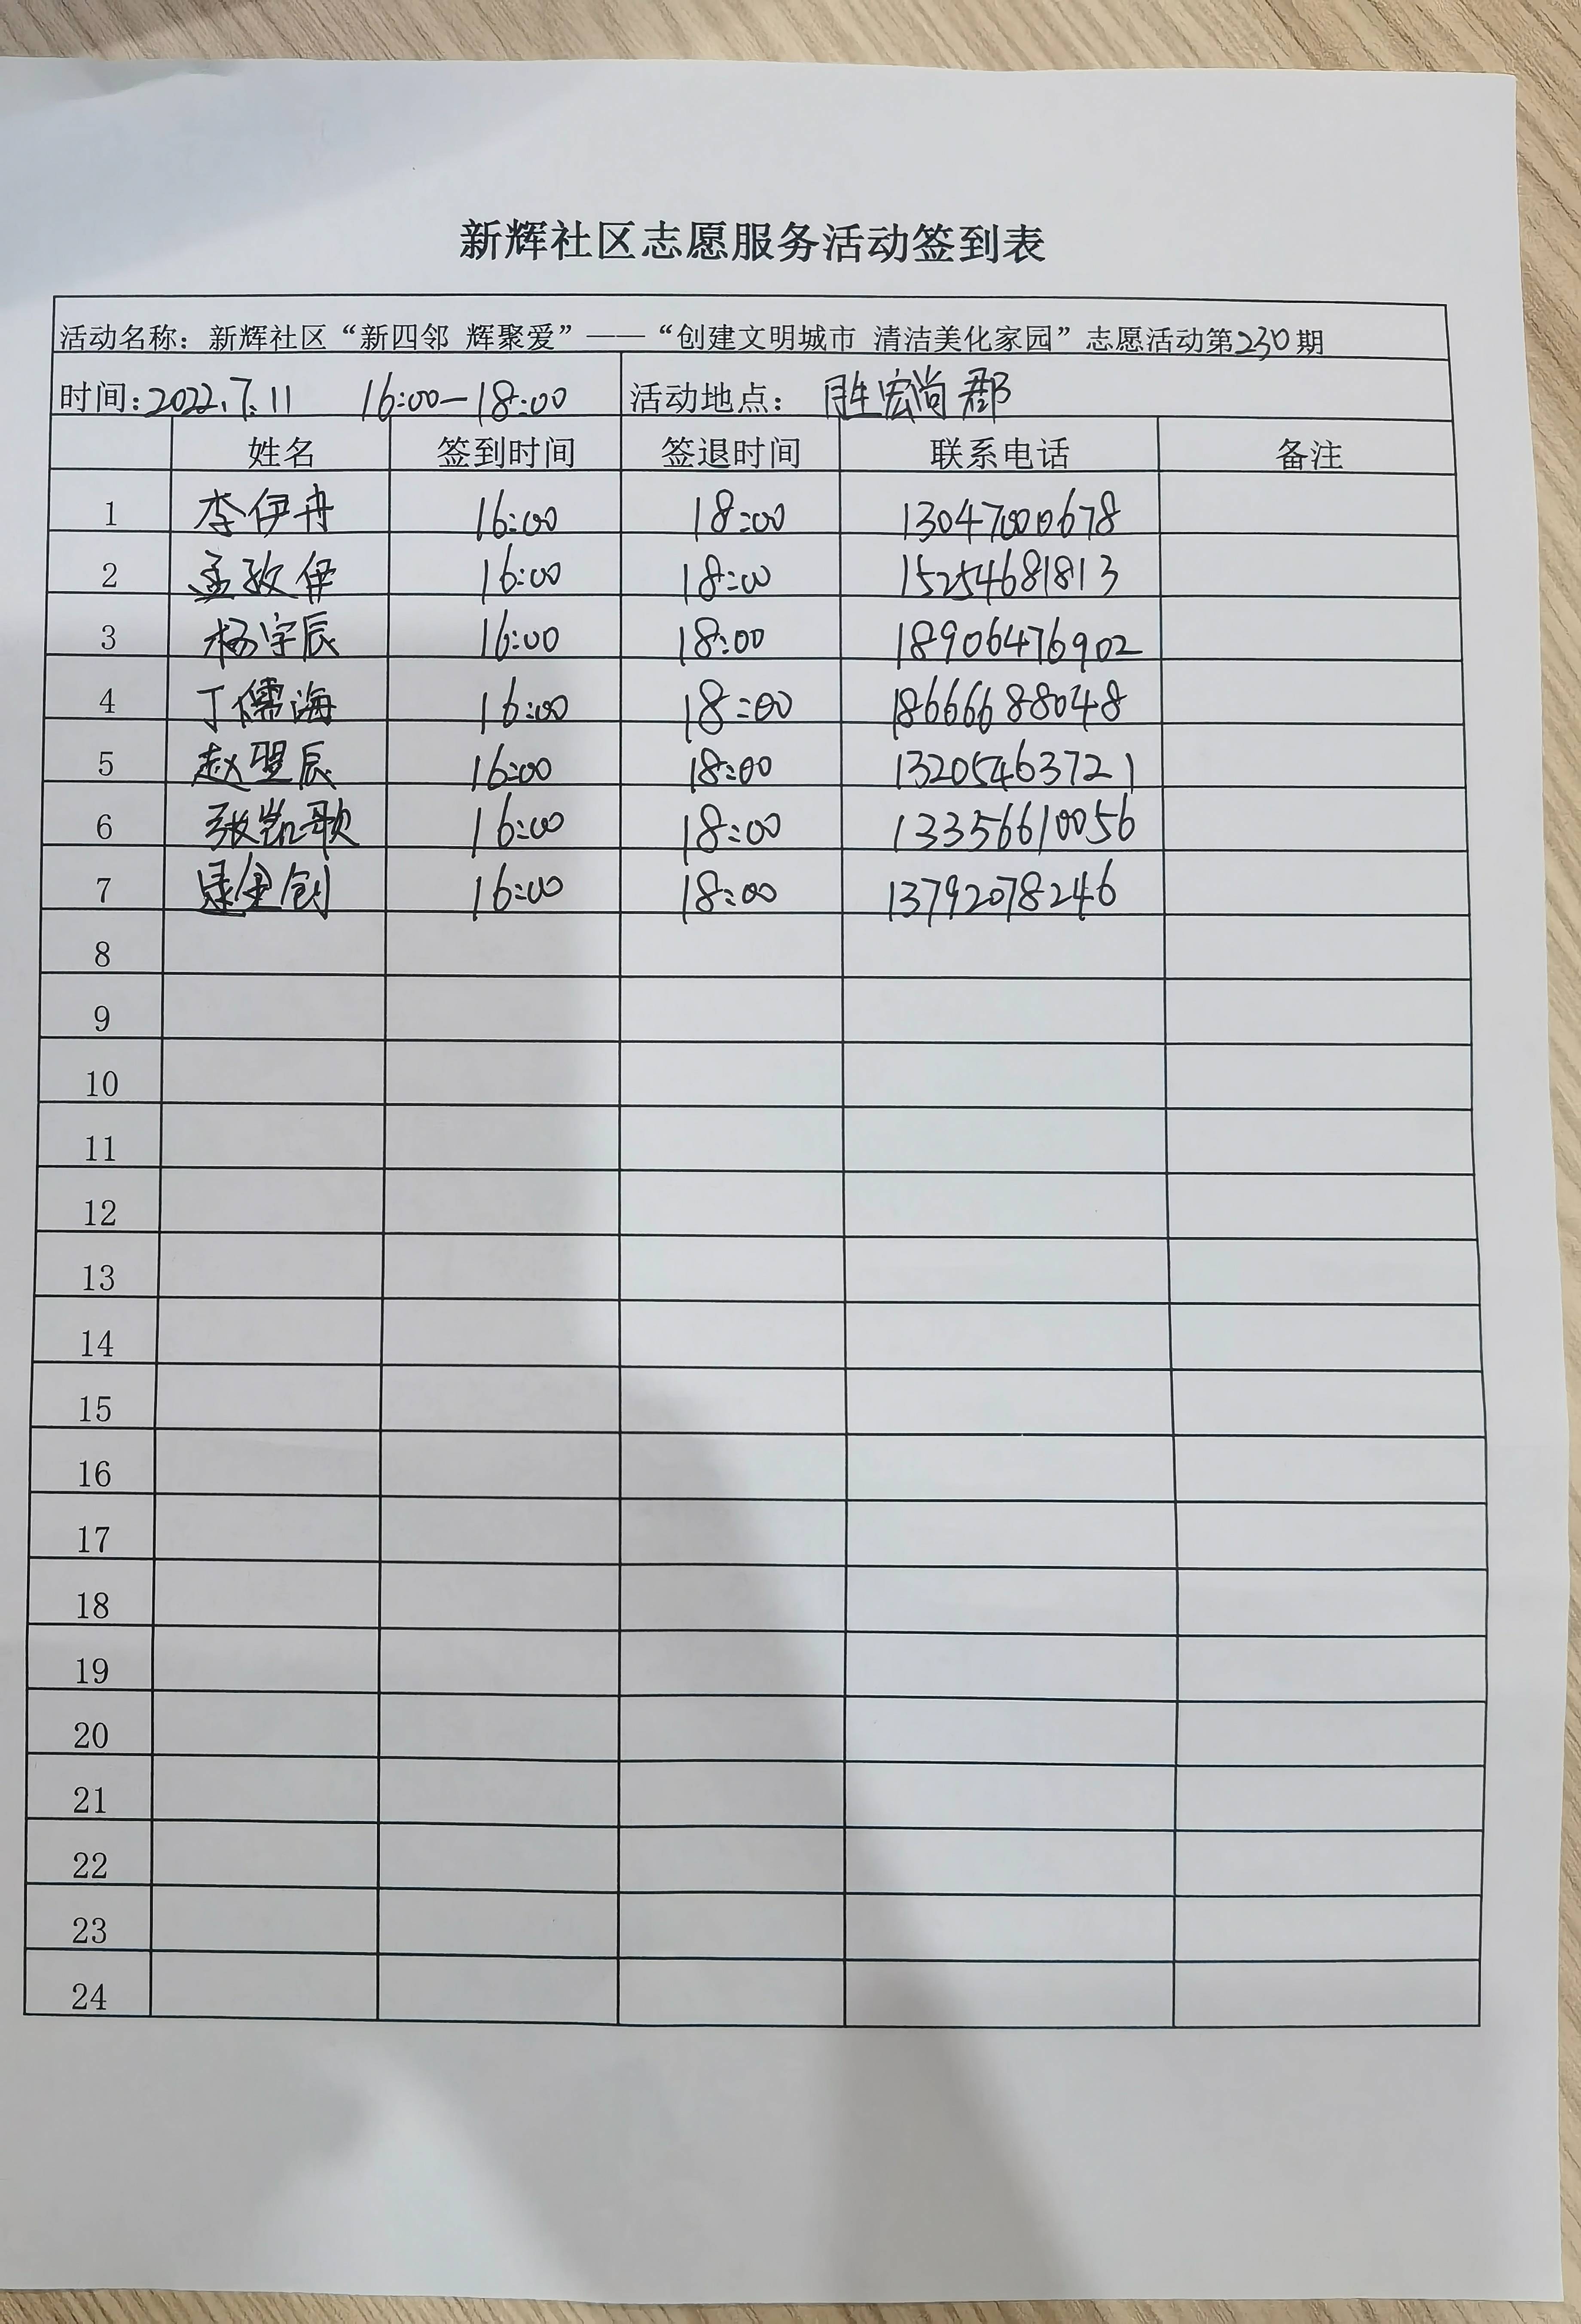 新辉社区志愿服务活动签到表
活动名称：新辉社区“新四邻 辉聚爱”——“创建文明城市 清洁美化家园”志愿活动第230期
时间：2022.7.11 16:00—18:00 活动地点：胜宏尚郡
姓名 签到时间 签退时间 联系电话 备注
1 李伊丹 16:00 18:00 13047000678
2 孟敬伊 16:00 18:00 15254681813
3 杨宇辰 16:00 18:00 18906476902
4 丁儒海 16:00 18:00 18666688048
5 赵曌辰 16:00 18:00 13205463721
6 张凯歌 16:00 18:00 13356610056
7 16:00 18:00 13792078246
8
9
10
11
12
13
14
15
16
17
18
19
20
21
22
23
24